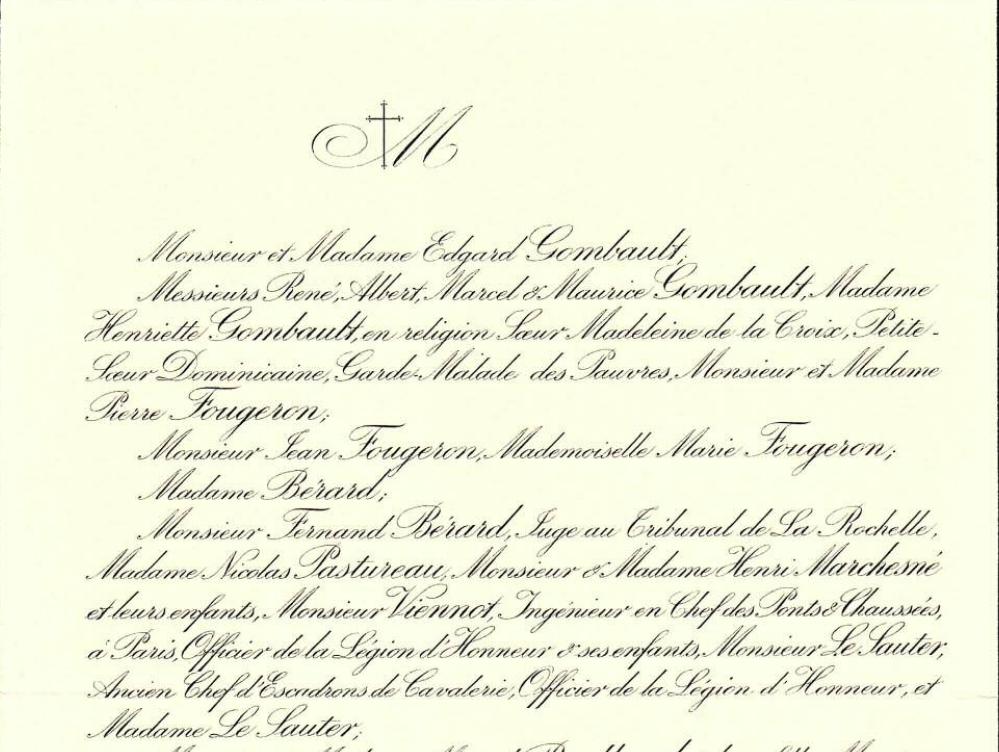 M
Monsieur et Madame Edgard Gombault,
Messieurs René, Albert, Marcel & Maurice Gombault, Madame
Henriette Gombault, en religion Sœur Madeleine de la Croix, Petite-
Sœur Dominicaine, Garde-Malade des Pauvres, Monsieur et Madame
Pierre Fougeron;
Monsieur Jean Fougeron, Mademoiselle Marie Fougeron;
Madame Bérard;
Monsieur Fernand Bérard, Juge au Tribunal de La Rochelle,
Madame Nicolas Pastureau, Monsieur & Madame Henri Marchesné
et leurs enfants, Monsieur Viennot, Ingénieur en Chef des Ponts & Chaussées,
à Paris, Officier de la Légion d'Honneur & ses enfants, Monsieur Le Sauter,
Ancien Chef d'Escadrons de Cavalerie, Officier de la Légion d'Honneur, et
Madame Le Sauter;